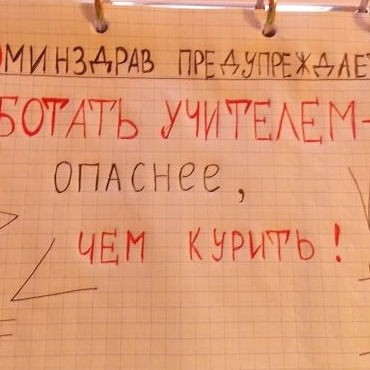 МИНЗДРАВ ПРЕДУПРЕЖДАЕТ
БОТАТЬ УЧИТЕЛЕМ-
ОПАСНЕЕ,
ЧЕМ КУРИТЬ!